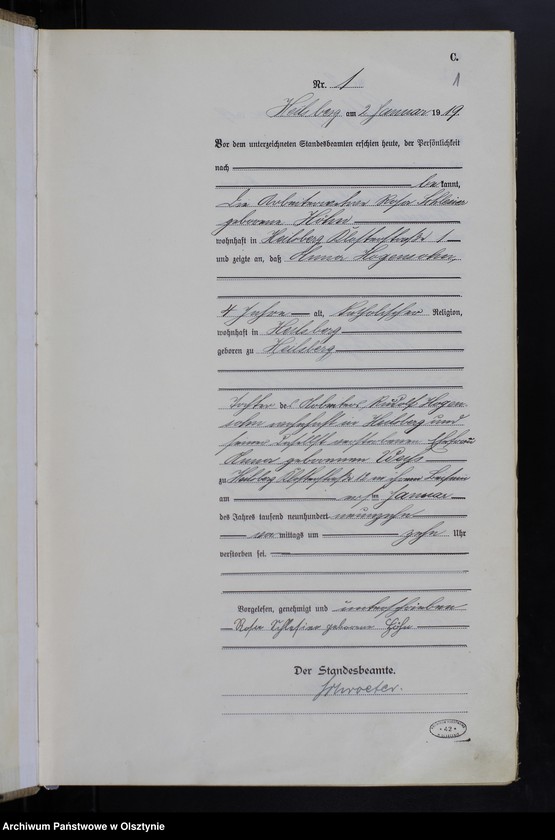 C.
1
Nr. 1
Heilsberg am 2 Januar 1919.
Vor dem unterzeichneten Standesbeamten erschien heute, der Persönlichkeit
nach
be kannt,
die Arbeiterwitwe Rosa Schlesier
geborene Höhn
wohnhaft in Heilsberg Klosterstraße 1
und zeigte an, daß Anna
4 Jahre alt, katholischer Religion,
wohnhaft in Heilsberg
geboren zu Heilsberg
Tochter des Arbeiters Rudolf
wohnhaft in Heilsberg und
seiner daselbst verstorbenen Ehefrau
Anna geborenen
zu Heilsberg Klosterstraße in ihrem Beisein
am ersten Januar
des Jahres tausend neunhundert neunzehn
vor mittags um zehn Uhr
verstorben sei.
Vorgelesen, genehmigt und unterschrieben
Rosa Schlesier geborene Höhn
Der Standesbeamte.
Schroeter.
42
Archiwum Państwowe w Olsztynie